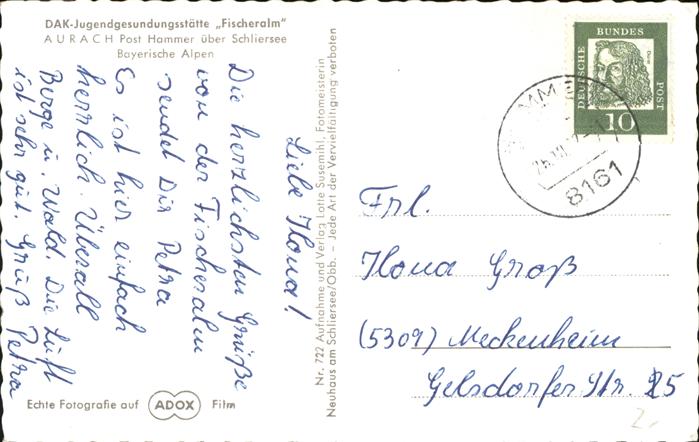 DAK-Jugendgesundungsstätte „Fischeralm“
AURACH Post Hammer über Schliersee
Bayerische Alpen
Liebe Ilona!
Die herzlichsten Grüße
von der Fischeralm
sendet Dir Petra
Es ist hier einfach
herrlich. Überall
Berge u. Wald. Die Luft
ist sehr gut. Gruß Petra
Echte Fotografie auf ADOX Film
Nr. 722 Aufnahme und Verlag Lotte Susemihl, Fotomeisterin
Neuhaus am Schliersee/Obb. – Jede Art der Vervielfältigung verboten
DEUTSCHE
BUNDES
POST
Dürer
10
8161
Frl.
Ilona Groß
(5309) Meckenheim
Gelsdorfer Str. 25